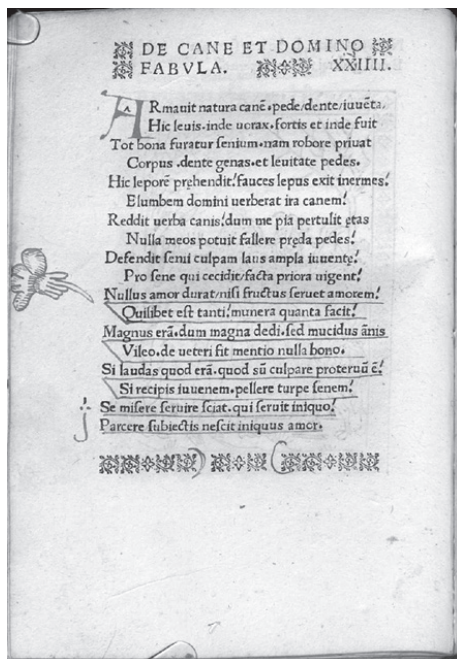 DE CANE ET DOMINO
FABVLA. XXIIII.
ARmauit natura canē.pede/dente/iuuēta.
Hic leuis.inde uorax.fortis et inde fuit
Tot bona furatur senium.nam robore priuat
Corpus .dente genas.et leuitate pedes.
Hic leporē prehendit!fauces lepus exit inermes!
Elumbem domini uerberat ira canem!
Reddit uerba canis!dum me pia pertulit ętas
Nulla meos potuit fallere pręda pedes!
Defendit senii culpam laus ampla iuuentę!
Pro sene qui cecidit/facta priora uigent!
Nullus amor durat/nisi fructus seruet amorem!
Quilibet est tanti!munera quanta facit!
Magnus erā.dum magna dedi.sed mucidus ānis
Vileo.de ueteri fit mentio nulla bono.
Si laudas quod erā.quod sū culpare proteruū ē!
Si recipis iuuenem.pellere turpe senem!
Se misere seruire sciat.qui seruit iniquo!
Parcere subiectis nescit iniquus amor.